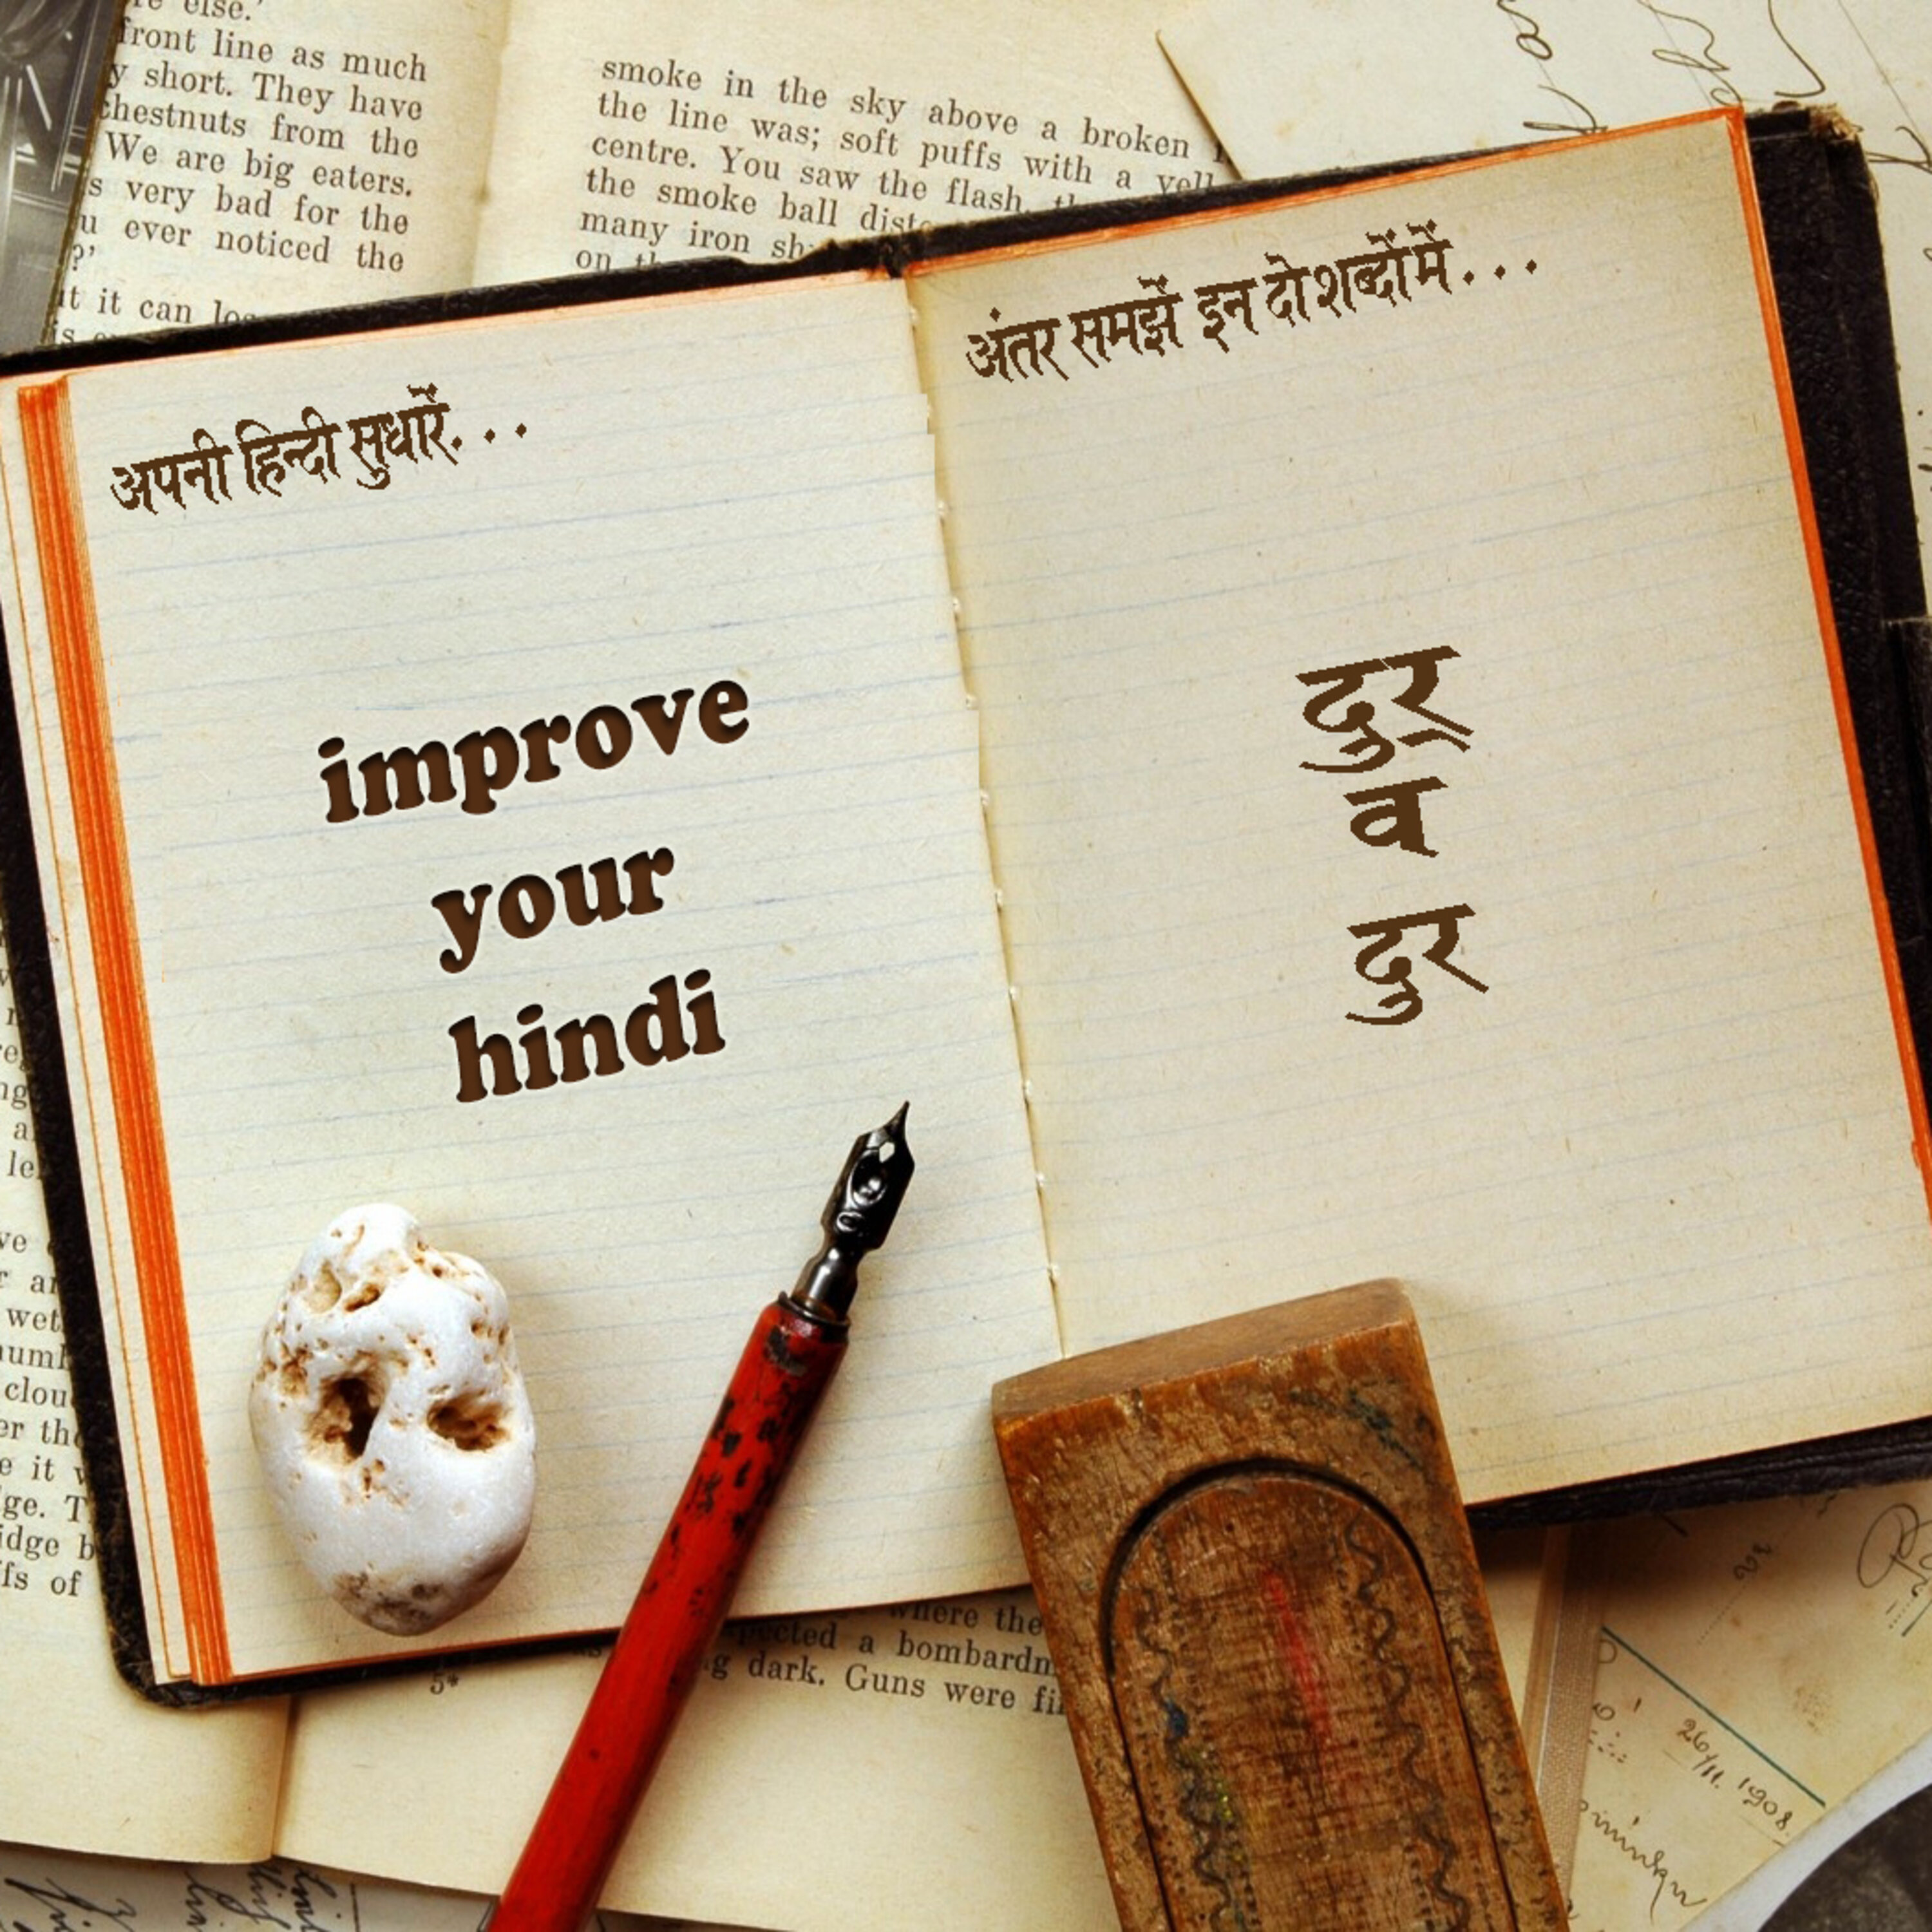 re else.'
front line as much
y short. They have
chestnuts from the
We are big eaters.
s very bad for the
u ever noticed the
?'
it it can
smoke in the sky above a broken
the line was; soft puffs with a
centre. You saw the flash,
the smoke ball
many iron
on
अपनी हिन्दी सुधारें...
improve
your
hindi
अंतर समझें इन दो शब्दों में...
दुर्
व
दुर
wet
clou
it
ge. T
idge b
fs of
where the
a bombardm
g dark. Guns were
5*
26/11. 1908.